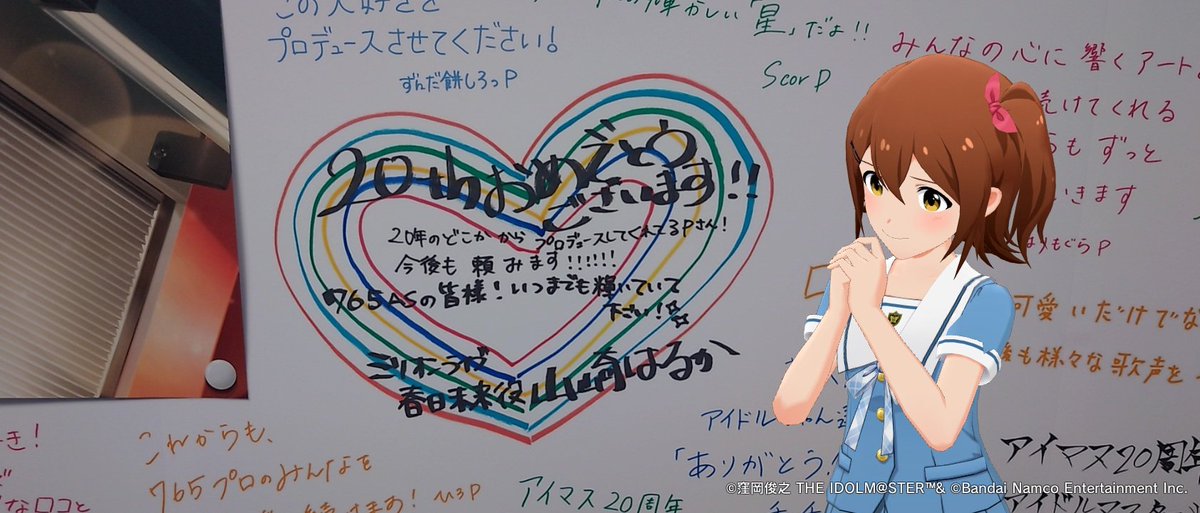 この大好きを
プロデュースさせてください!
ずんだ餅しろっP
輝かしい「星」だよ!!
Scor P
みんなの心に響くアート
続けてくれる
もずっと
いきます
もぐらP
20thおめでとう
ございます!!
20年のどこかからプロデュースしてくれてるPさん!
今後も頼みます!!!!!!
765ASの皆様!いつまでも輝いていて
下さい!
ミリオンライブ
春日未来役 山崎はるか
可愛いだけでな
後も様々な歌声を
アイドル
「ありがとう
アイマス20周年
アイドルマスター
き!
なロコと
これからも、
765プロのみんなを
ひろP
アイマス20周年
©窪岡俊之 THE IDOLM@STER™& ©Bandai Namco Entertainment Inc.